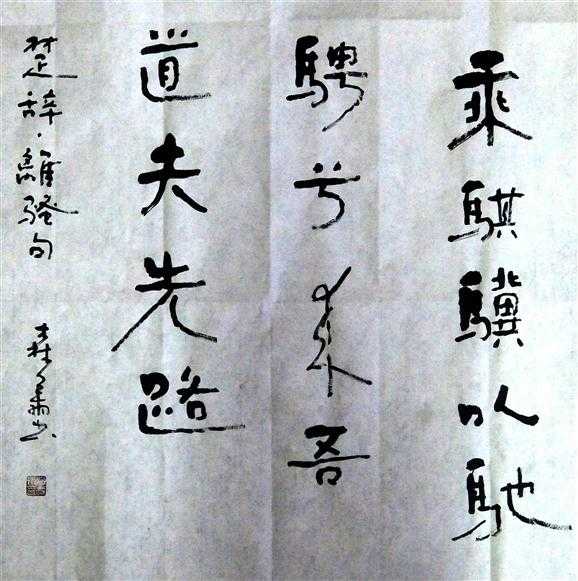 乘騏驥以馳
騁兮来吾
道夫先路
楚辞·離騷句
森